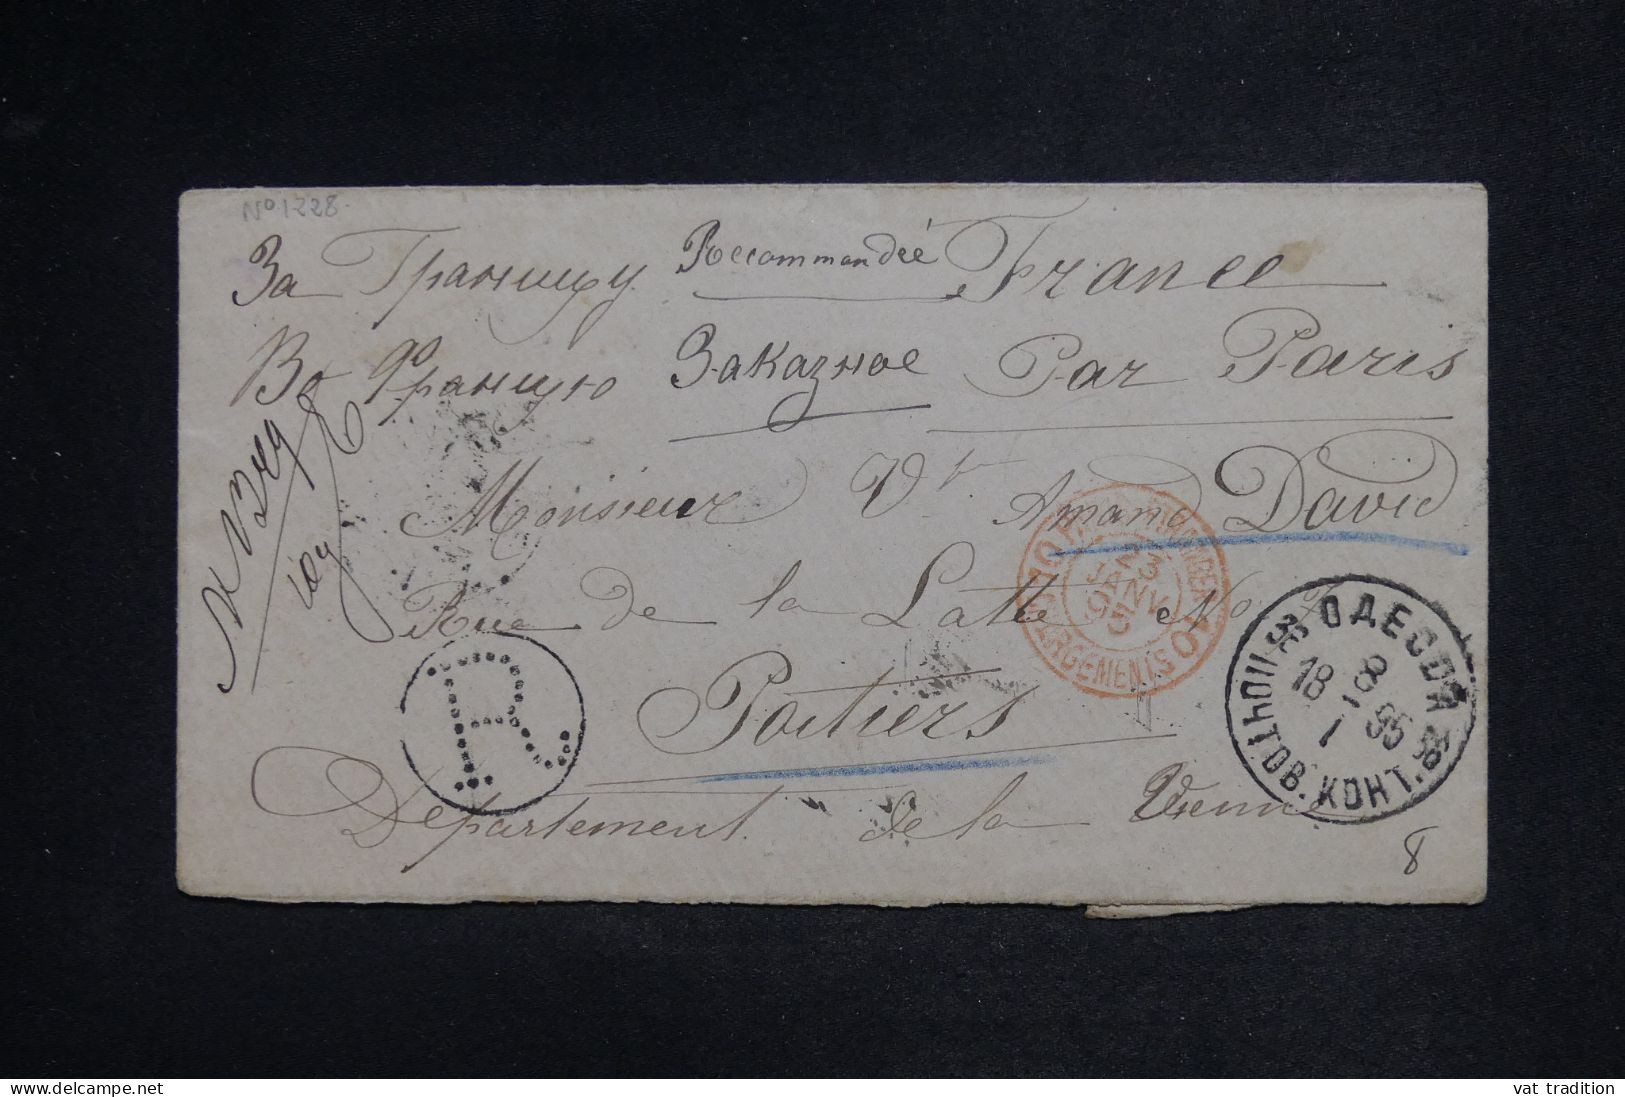 No 1228.
За Границу Recommandée France
Во Францію Заказное Par Paris
Monsieur Vr Amand David
Rue de la Latte No 7
Poitiers
Departement de la Vienne
R
CHARGEMENTS
23
JANV
95
ОДЕССА
8
18 95
1
ПОЧТОВ. КОНТ.
8
vat tradition